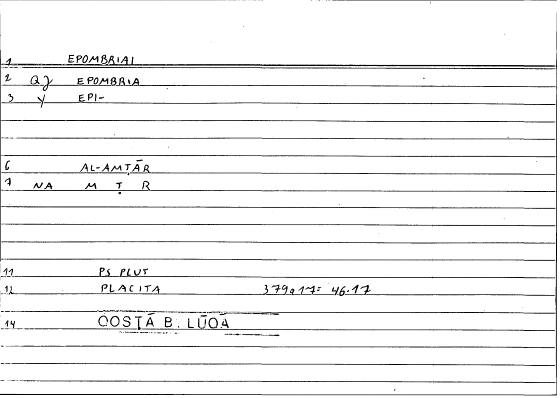 1 EPOMBRIAI
2 QJ EPOMBRIA
3 Y EPI-
6 AL-AMṬĀR
7 NA M Ṭ R
11 PS PLUT
12 PLACITA 379a17= 46.17
14 QOSṬĀ B. LŪQĀ